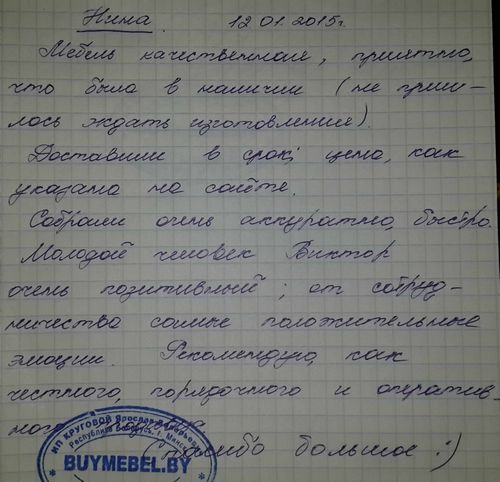 Нина. 12.01.2015г.
Мебель качественная, приятно,
что была в наличии (не приш-
лось ждать изготовления).
Доставили в срок; цена, как
указана на сайте.
Собрали очень аккуратно, быстро.
Молодой человек Виктор
очень позитивный; от сотруд-
ничества самые положительные
эмоции. Рекомендую, как
честного, порядочного и оператив-
ного
Спасибо большое :)
ИП КРУГОВОЙ Ярослав
Республика Беларусь, г. Минск
BUYMEBEL.BY